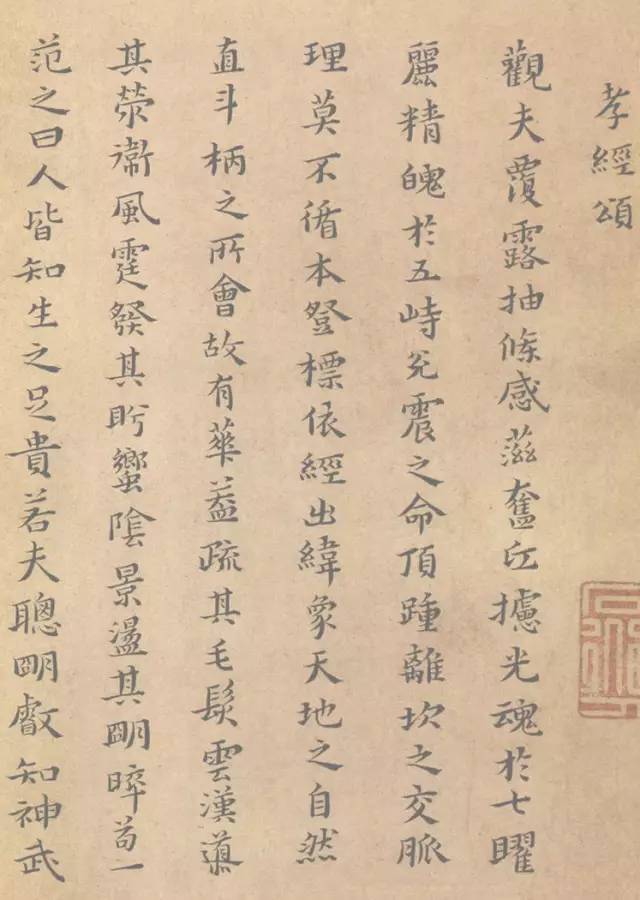 孝經頌
觀夫覆露抽條感蕬奮丘攄光魂於七曜
麗精魄於五峙兌震之命頂踵離坎之交脈
理莫不循本發標依經出緯象天地之自然
直斗柄之所會故有華蓋疏其毛髮雲漢導
其滎衞風霆發其肸蠁陰景盪其朙晬茍一
范之曰人皆知生之足貴若夫聰朙叡知神武